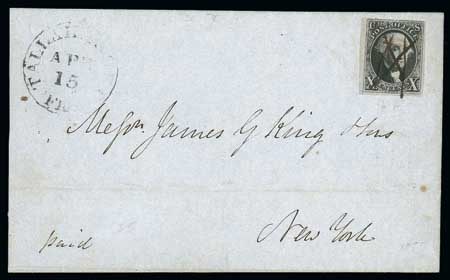 TALLAHASSEE
APR
15
FLOR
POST OFFICE
X X
Messrs James G King & Sons
New York
paid